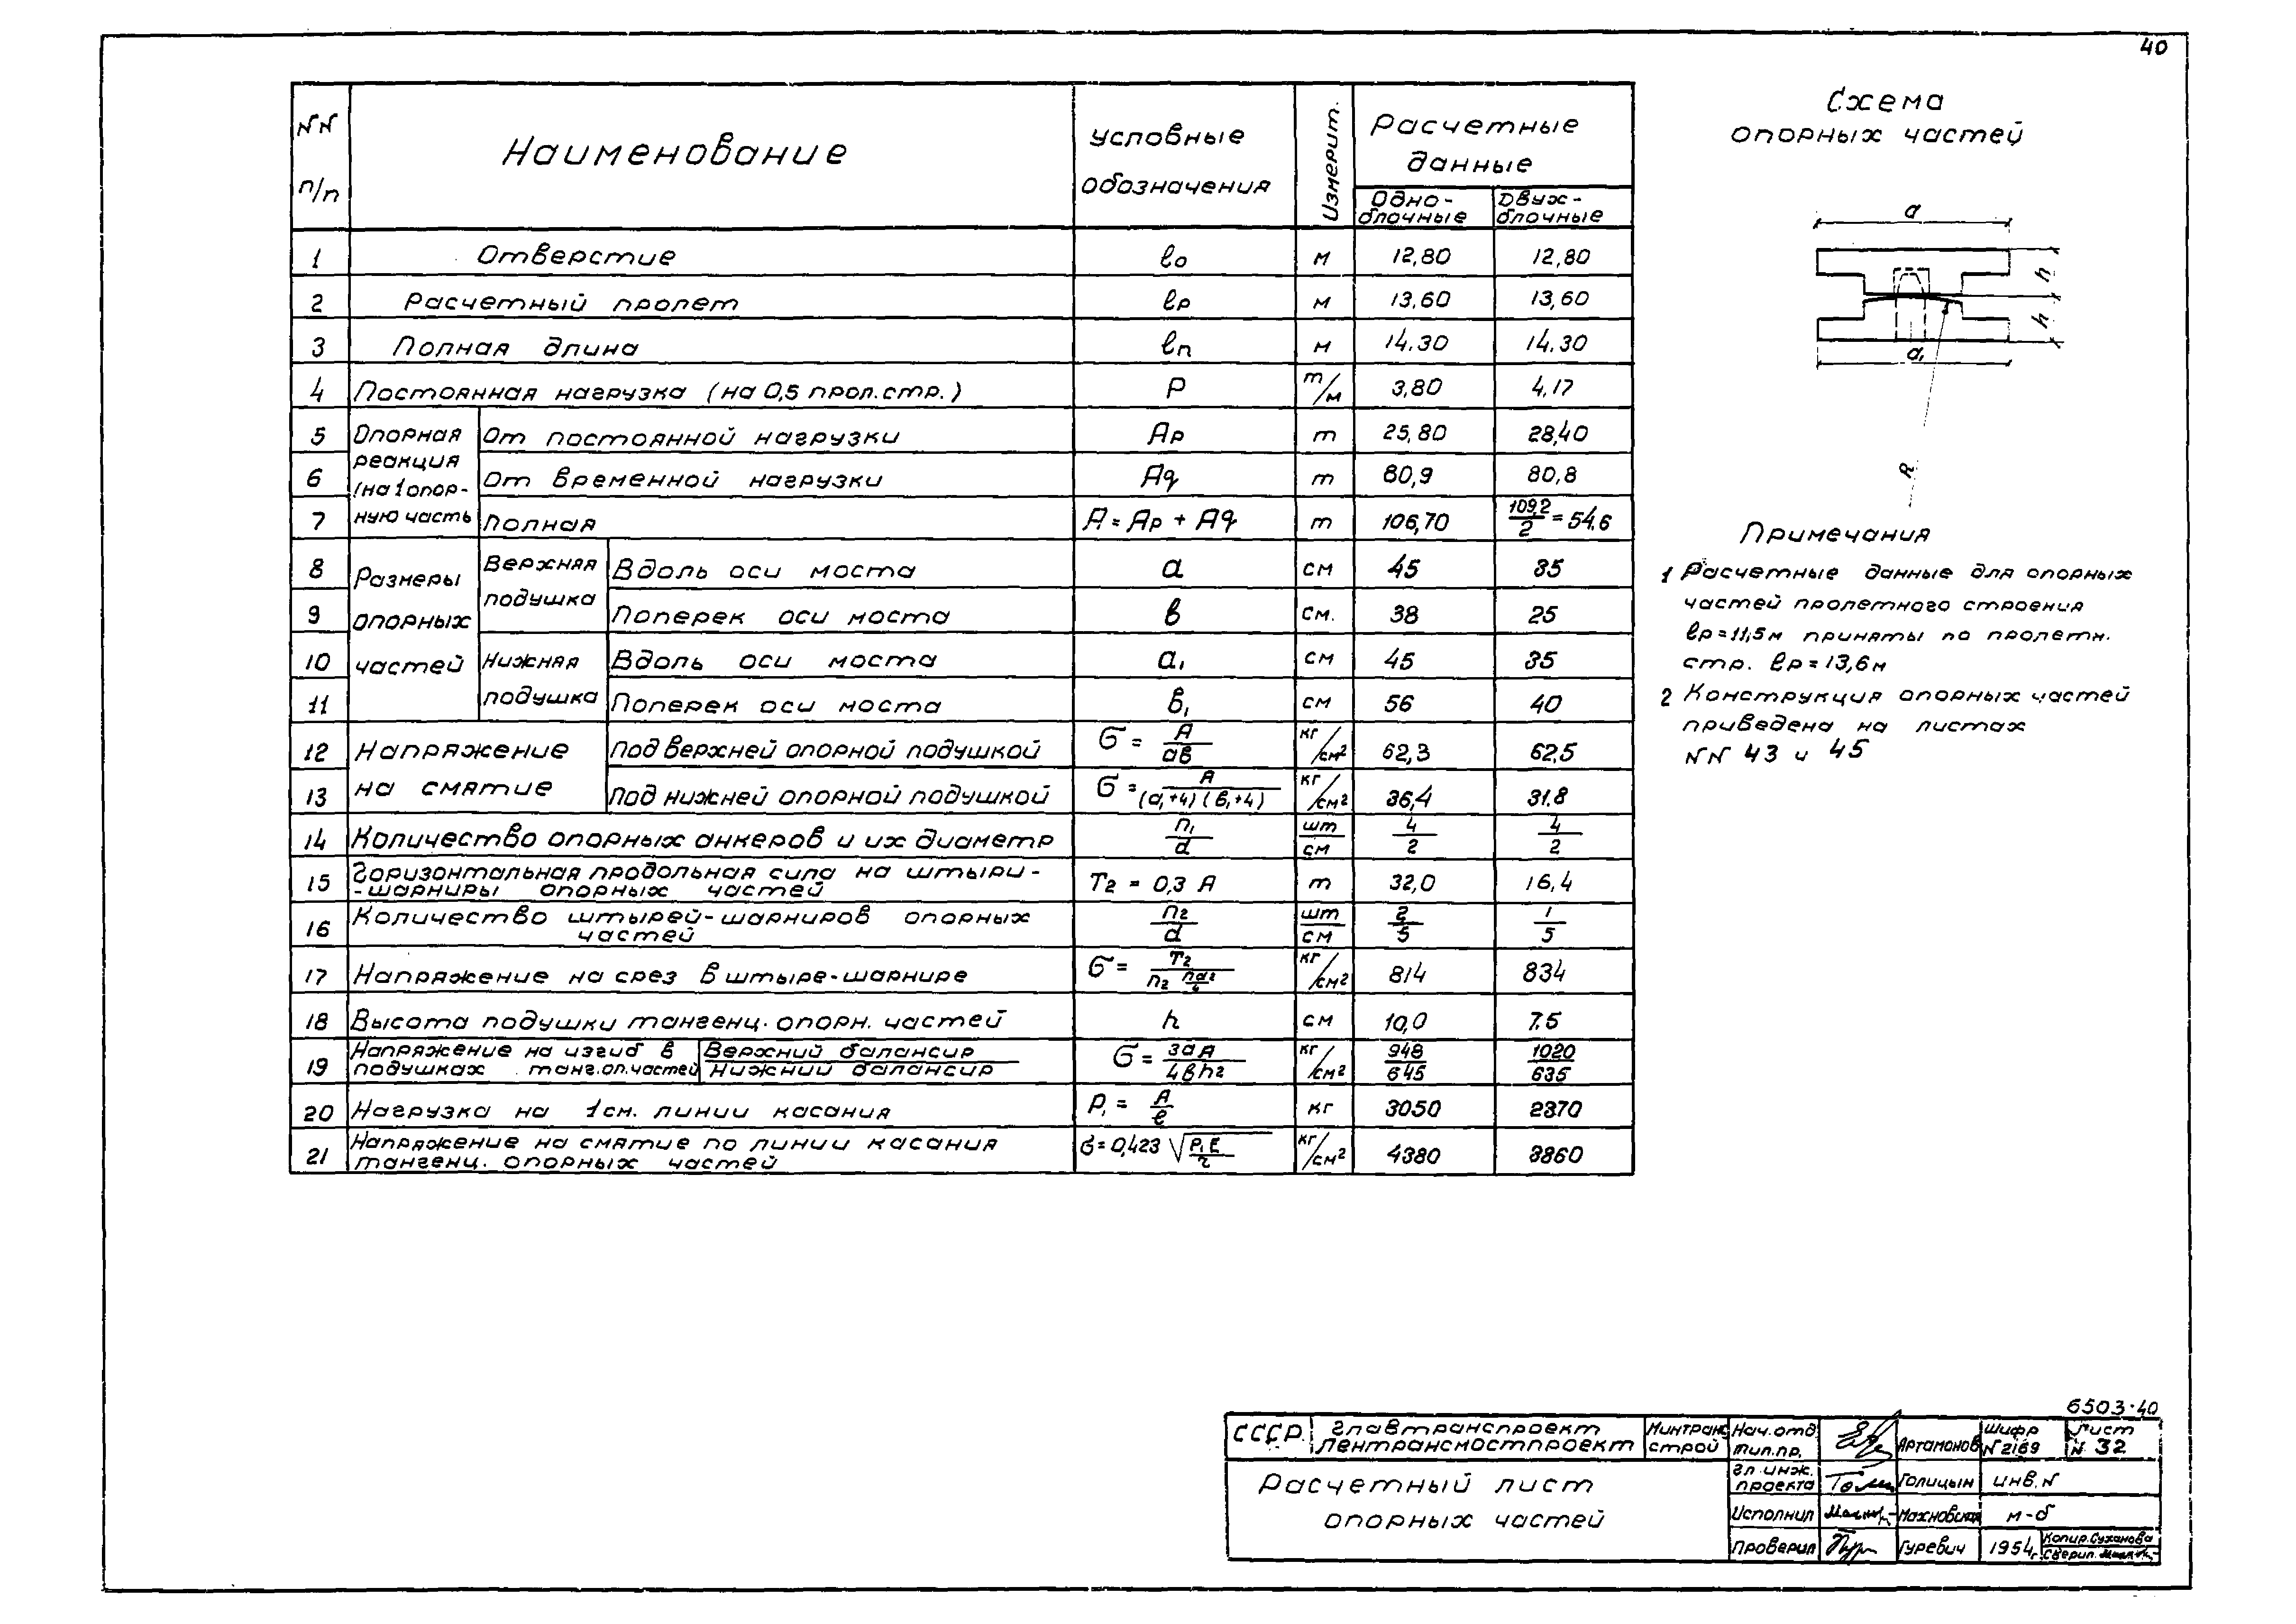 40
NN п/п
Наименование
Условные обозначения
Измерит.
Расчетные данные
Одно-блочные
Двух-блочные
1 Отверстие l₀ м 12,80 12,80
2 Расчетный пролет lр м 13,60 13,60
3 Полная длина lп м 14.30 14.30
4 Постоянная нагрузка (на 0,5 прол.стр.) Р т/м 3,80 4,17
Опорная реакция (на 1 опорную часть
5 От постоянной нагрузки Ар т 25,80 28,40
6 От временной нагрузки Аq т 80,9 80,8
7 Полная А = Ар + Аq т 106,70 109,2/2 = 54,6
Размеры опорных частей
Верхняя подушка
8 Вдоль оси моста а см 45 35
9 Поперек оси моста в см. 38 25
Нижняя подушка
10 Вдоль оси моста а₁ см 45 35
11 Поперек оси моста в₁ см 56 40
Напряжение на смятие
12 Под верхней опорной подушкой σ = А/ав кг/см² 62,3 62,5
13 Под нижней опорной подушкой σ = А/(а₁+4)(в₁+4) кг/см² 36,4 31.8
14 Количество опорных анкеров и их диаметр n₁/d шт/см 4/2 4/2
15 Горизонтальная продольная сила на штыри-
-шарниры опорных частей Т₂ = 0,3 А т 32,0 16,4
16 Количество штырей-шарниров опорных
частей n₂/d шт/см 2/5 1/5
17 Напряжение на срез в штыре-шарнире σ = Т₂/(n₂ πd²/4) кг/см² 814 834
18 Высота подушки тангенц. опорн. частей h см 10,0 7.5
19 Напряжение на изгиб в подушках танг.оп.частей Верхний балансир/Нижний балансир σ = 3аА/4вh² кг/см² 948/645 1020/635
20 Нагрузка на 1см. линии касания Р₁ = А/l кг 3050 2370
21 Напряжение на смятие по линии касания
тангенц. опорных частей σ = 0,423 √(Р₁Е/r) кг/см² 4380 3860
Схема
опорных частей
а
h
h
а₁
R
Примечания
1 Расчетные данные для опорных
частей пролетного строения
lр = 11,5м приняты по пролетн.
стр. lр = 13,6м
2 Конструкция опорных частей
приведена на листах
NN 43 и 45
6503·40
СССР
Главтранспроект
Лентрансмостпроект
Минтрансстрой
Расчетный лист
опорных частей
Нач.отд тип.пр. Артамонов
Гл. инж. проекта Голицын
Исполнил
Проверил Гуревич
Шифр N 2169
Лист N 32
инв. N
м-б
1954г.
Копир. Суханова
Сверил.